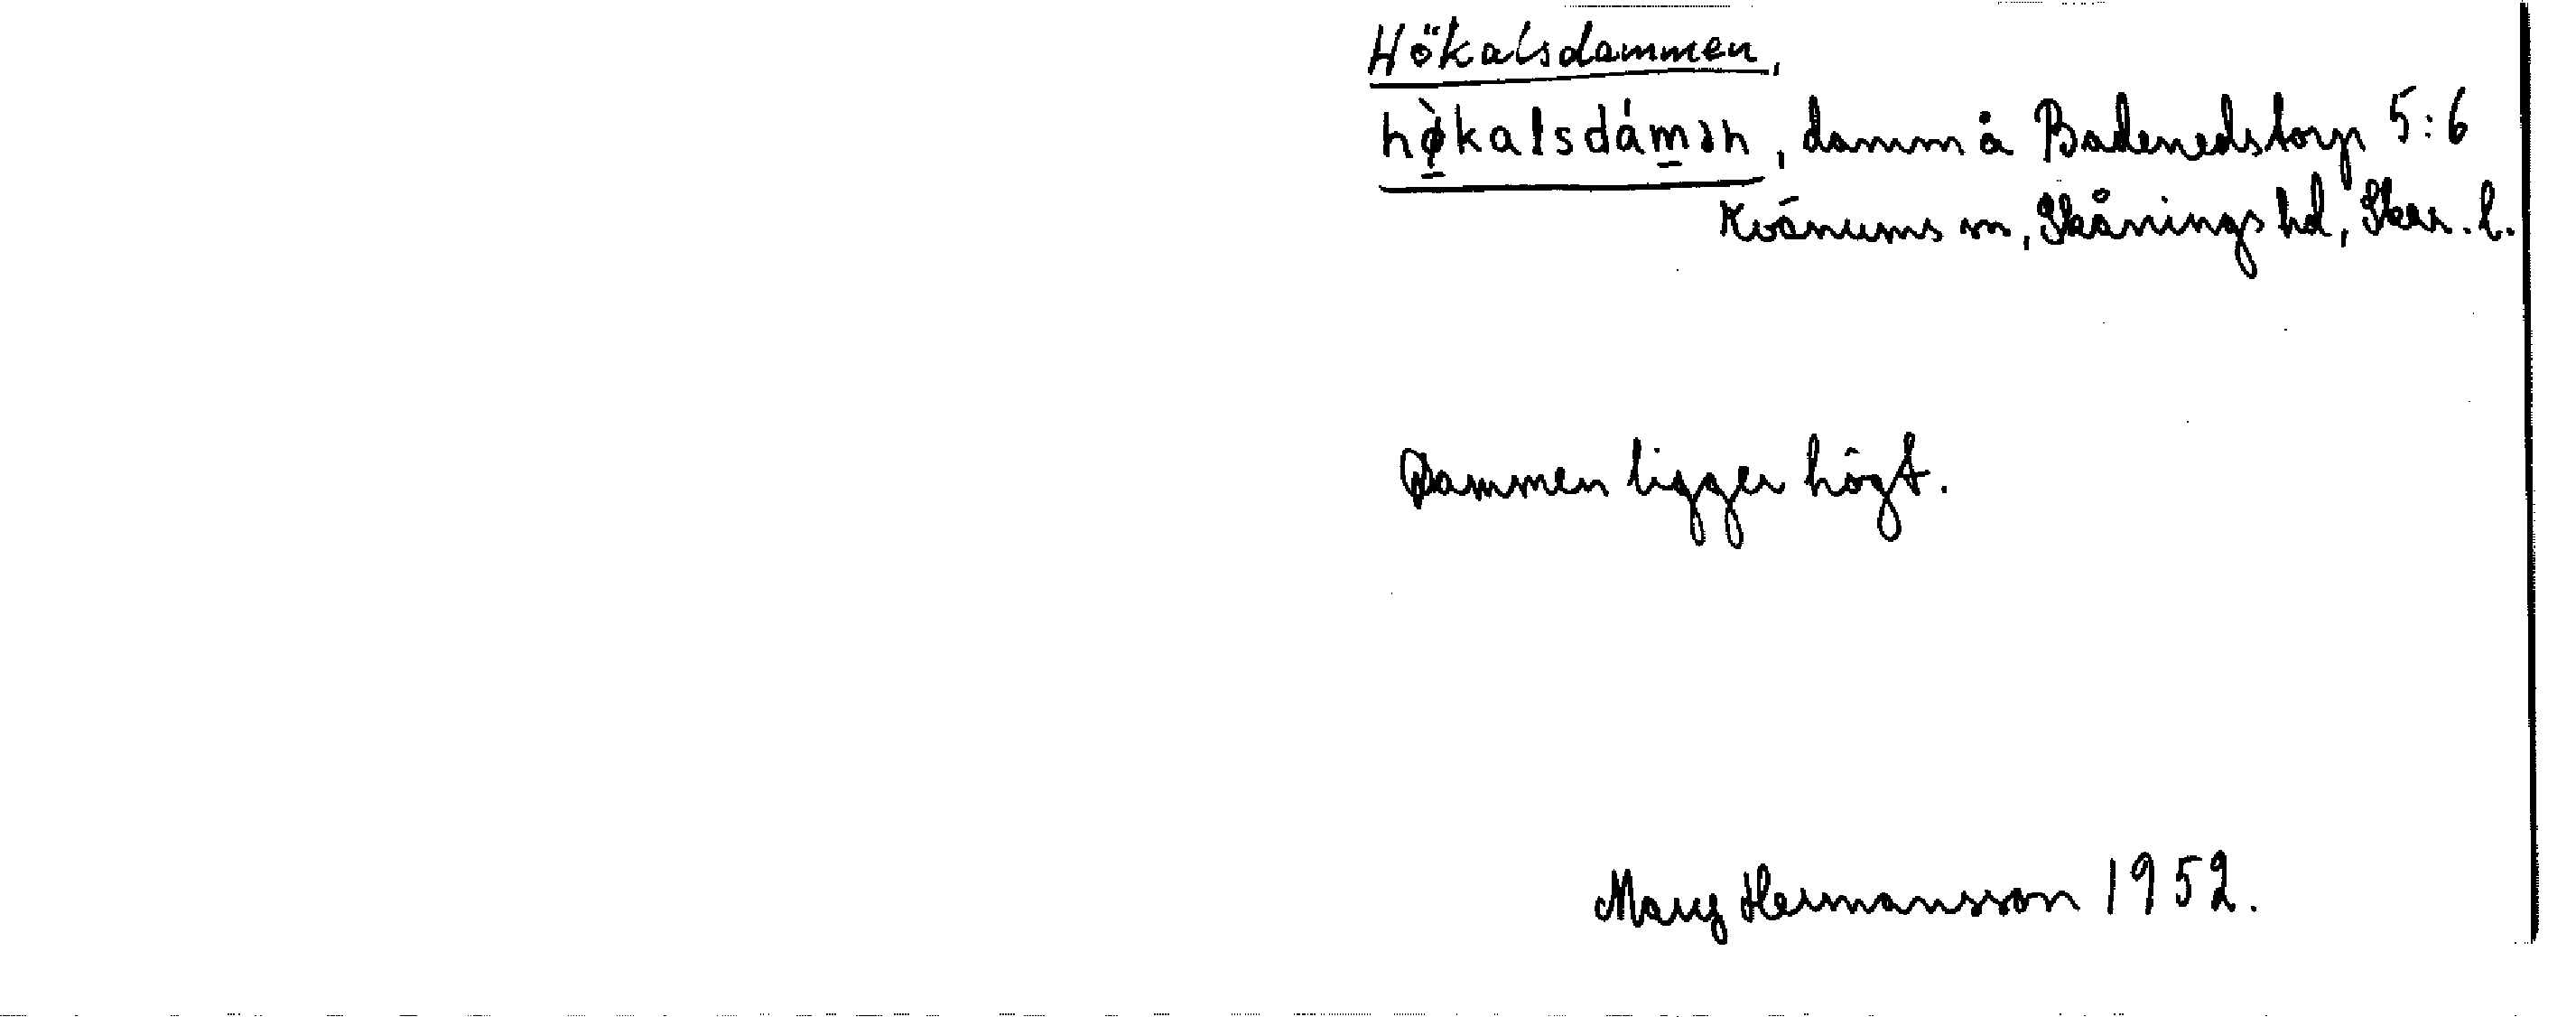 Hökalsdammen,
hø̠̀kalsdám̠ən, damm å Badenedstorp 5:6
Kvänums sn, Skånings hd, Skar. l.
Dammen ligger högt.
Mary Hermansson 1952.